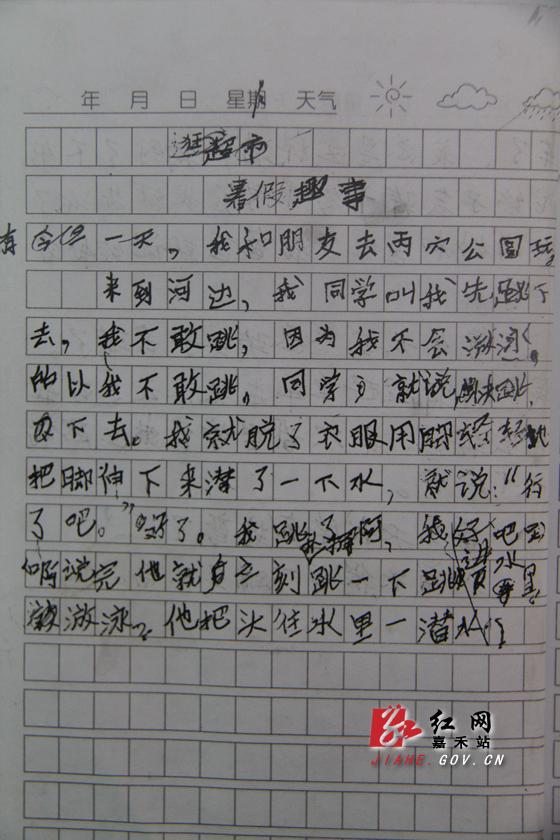 年 月 日 星期 天气
逛超市
暑假趣事
有一天，我和朋友去丙穴公园玩。
来到河边，我同学叫我先跳下
去，我不敢跳，因为我不会游泳，
的以我不敢跳，同学就说快跳，
下去。我就脱了衣服用脚轻轻地
把脚伸下来潜了一下水，就说：“行
了吧。”好了。我跳了啊，我好吧
啊说完他就立刻跳一下跳进水里
游泳。他把头往水里一潜水
红网
嘉禾站
JIAHE.GOV.CN